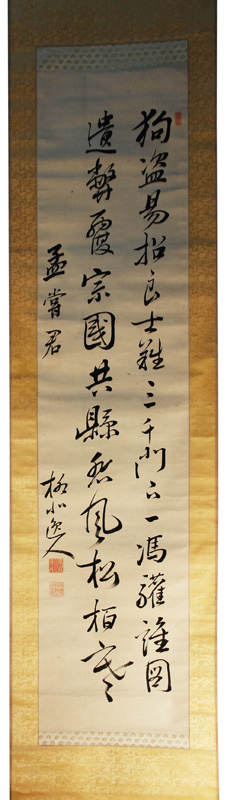 狗盗易招良士難三千門下一馮驩誰図
遺弊覆宗國共縣悲風松栢寒
孟嘗君
逸人